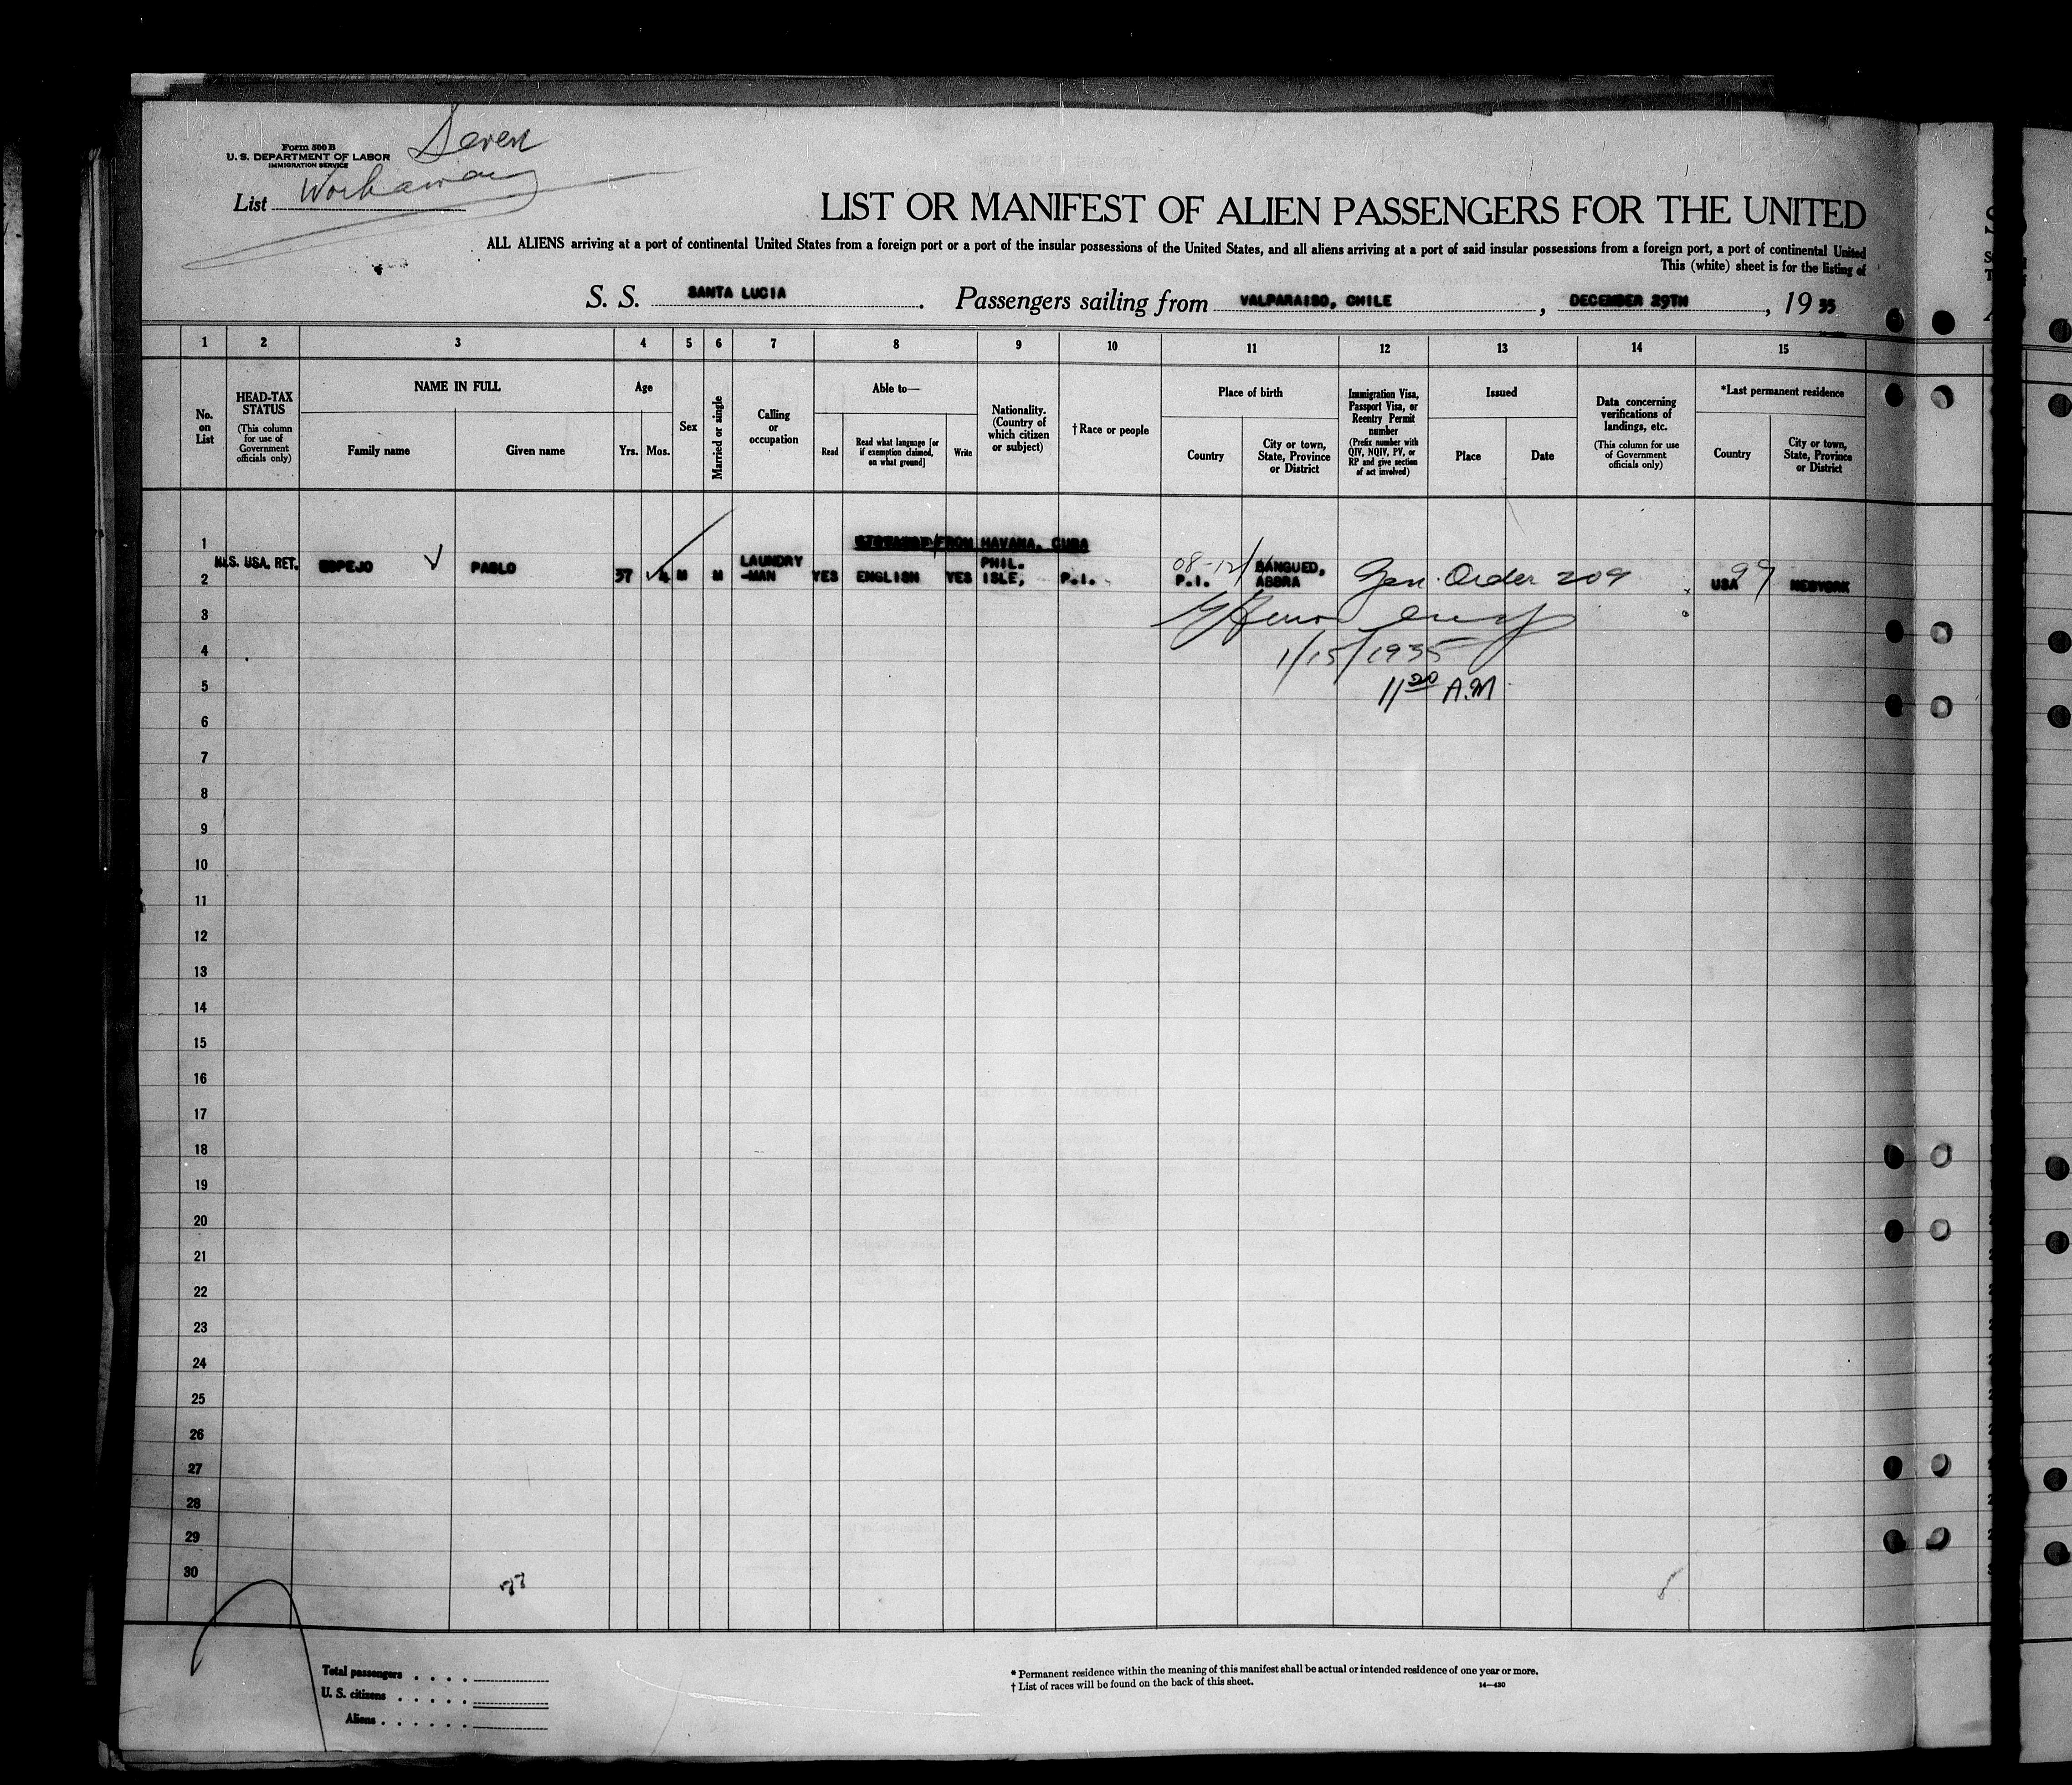 Seven
Form 500 B
U. S. DEPARTMENT OF LABOR
IMMIGRATION SERVICE
List Workaway
LIST OR MANIFEST OF ALIEN PASSENGERS FOR THE UNITED
ALL ALIENS arriving at a port of continental United States from a foreign port or a port of the insular possessions of the United States, and all aliens arriving at a port of said insular possessions from a foreign port, a port of continental United
This (white) sheet is for the listing of
S. S. SANTA LUCIA. Passengers sailing from VALPARAISO, CHILE, DECEMBER 29TH, 19 35
1 2 3 4 5 6 7 8 9 10 11 12 13 14 15
No. on List
HEAD-TAX STATUS (This column for use of Government officials only)
NAME IN FULL
Family name
Given name
Age
Yrs. Mos.
Sex
Married or single
Calling or occupation
Able to—
Read
Read what language [or if exemption claimed, on what ground]
Write
Nationality. (Country of which citizen or subject)
† Race or people
Place of birth
Country
City or town, State, Province or District
Immigration Visa, Passport Visa, or Reentry Permit number (Prefix number with QIV, NQIV, PV, or RP and give section of act involved)
Issued
Place
Date
Data concerning verifications of landings, etc. (This column for use of Government officials only)
*Last permanent residence
Country
City or town, State, Province or District
1 FROM HAVANA, CUBA
2 USA. RET. ESPEJO PABLO 37 4 M M LAUNDRY -MAN YES ENGLISH YES PHIL. ISLE, P.I. 08-12/ P.I. BANGUED, ABBRA Gen. Order 209 USA 99 NEWYORK
3
4 1/15/1935
5 11 20 A.M
6
7
8
9
10
11
12
13
14
15
16
17
18
19
20
21
22
23
24
25
26
27
28
29
30
77
Total passengers . . . .
U. S. citizens . . . . .
Aliens . . . . . .
* Permanent residence within the meaning of this manifest shall be actual or intended residence of one year or more.
† List of races will be found on the back of this sheet.
14—430